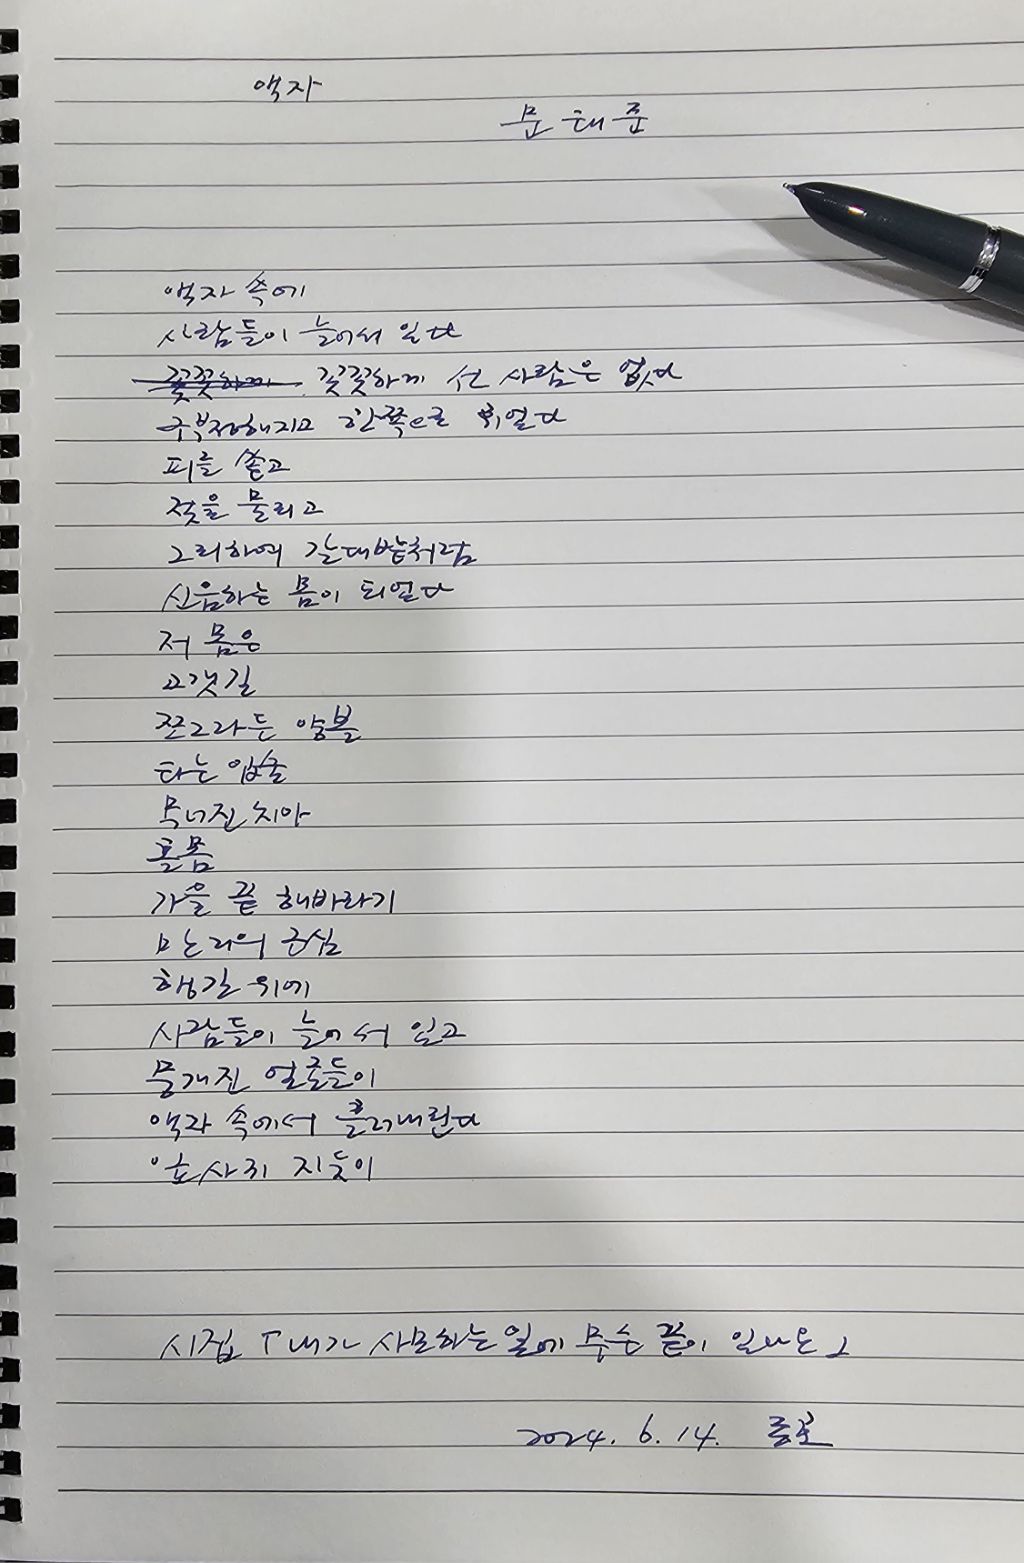 액자
문태준
액자 속에
사람들이 늘어서 있다
꼿꼿하게 꼿꼿하게 선 사람은 없다
구부정해지고 한쪽으로 휘었다
피를 쏟고
젖을 물리고
그리하여 갈대밭처럼
신음하는 몸이 되었다
저 몸은
고갯길
쪼그라든 양볼
타는 입술
무너진 치아
홀몸
가을 끝 해바라기
만리의 근심
행길 위에
사람들이 늘어서 있고
뭉개진 얼굴들이
액자 속에서 흘러내린다
시집 「내가 사모하는 일에 무슨 끝이 있나요」
2024. 6. 14.